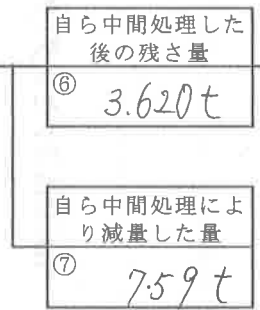 自ら中間処理した
後の残さ量
⑥
3.620t
自ら中間処理によ
り減量した量
⑦
7.59t